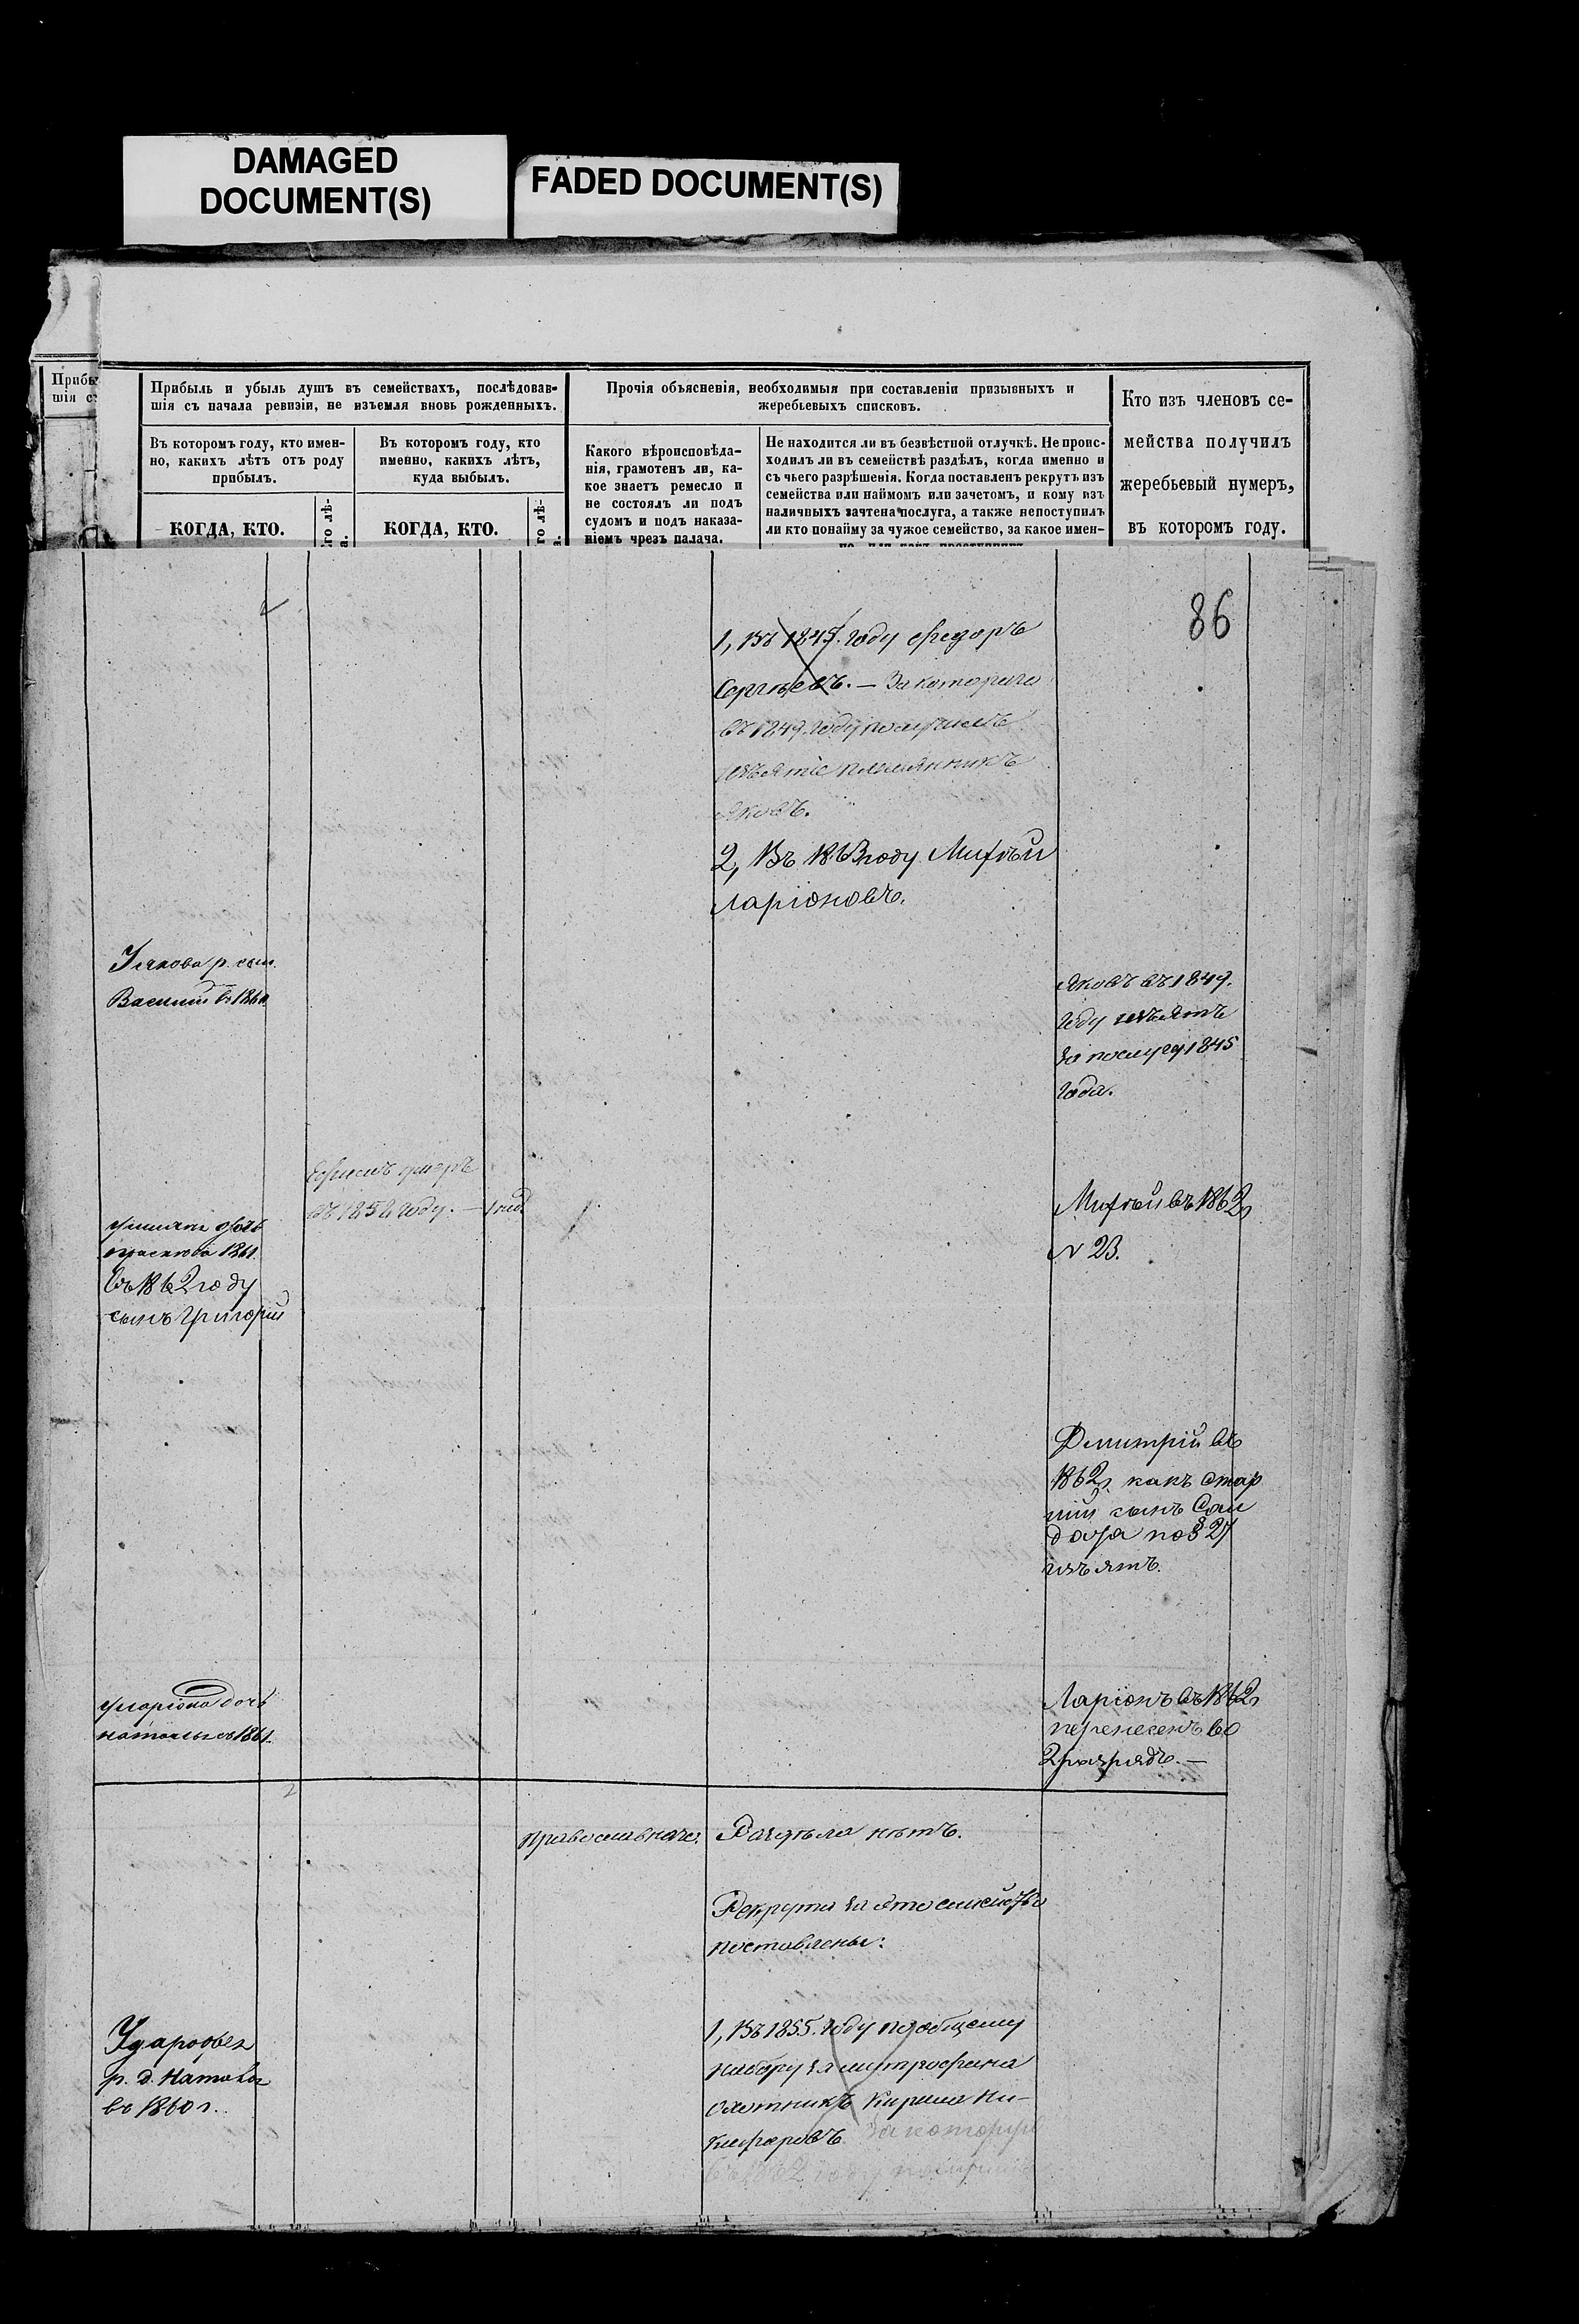 DAMAGED
DOCUMENT(S)
FADED DOCUMENT(S)
Прибы
шія съ
Прибыль и убыль душъ въ семействахъ, послѣдовав-
шія съ начала ревизіи, не изъемля вновь рожденныхъ.
Въ которомъ году, кто имен-
но, какихъ лѣтъ отъ роду
прибылъ.
КОГДА, КТО.
го лѣ-
а.
Въ которомъ году, кто
именно, какихъ лѣтъ,
куда выбылъ.
КОГДА, КТО.
го лѣ-
а.
Прочія объясненія, необходимыя при составленіи призывныхъ и
жеребьевыхъ списковъ.
Какого вѣроисповѣда-
нія, грамотенъ ли, ка-
кое знаетъ ремесло и
не состоялъ ли подъ
судомъ и подъ наказа-
ніемъ чрезъ палача.
Не находится ли въ безвѣстной отлучкѣ. Не проис-
ходилъ ли въ семействѣ раздѣлъ, когда именно и
съ чьего разрѣшенія. Когда поставленъ рекрутъ изъ
семейства или наймомъ или зачетомъ, и кому изъ
наличныхъ зачтена послуга, а также непоступилъ
ли кто понайму за чужое семейство, за какое имен-
Кто изъ членовъ се-
мейства получилъ
жеребьевый нумеръ,
въ которомъ году.
86
1, Въ 1845 году Федоръ
Сергѣевъ. — За котораго
въ 1849 году получилъ
изъятіе племянникъ
Яковъ.
2, Въ 1863 году Михѣй
Ларіоновъ.
У Якова р. сын.
Василій въ 1860
Яковъ въ 1849.
году изъятъ
за послугу 1845
года.
умеръ
въ 1854 году. — 1 нед.
дочь
1861.
въ 1862 году
сынъ Григорій
Михѣй въ 1862
N 23.
Дмитрій въ
1862 какъ стар
шій сынъ Сол
дата по § 27
изъятъ.
у Ларіона дочь
Наталья въ 1861.
Ларіонъ въ 1862
перенесенъ во
2 разрядъ. —
Православнаго.
Раздѣла нѣтъ.
Рекруты за это семейство
поставлены:
1, Въ 1855 году по общему
набору за Митрофана
охотникъ Кирила Ни-
кифоровъ. За котораго
въ 1862 году получилъ
У Дарофея
р. д. Наталья
въ 1860 г.